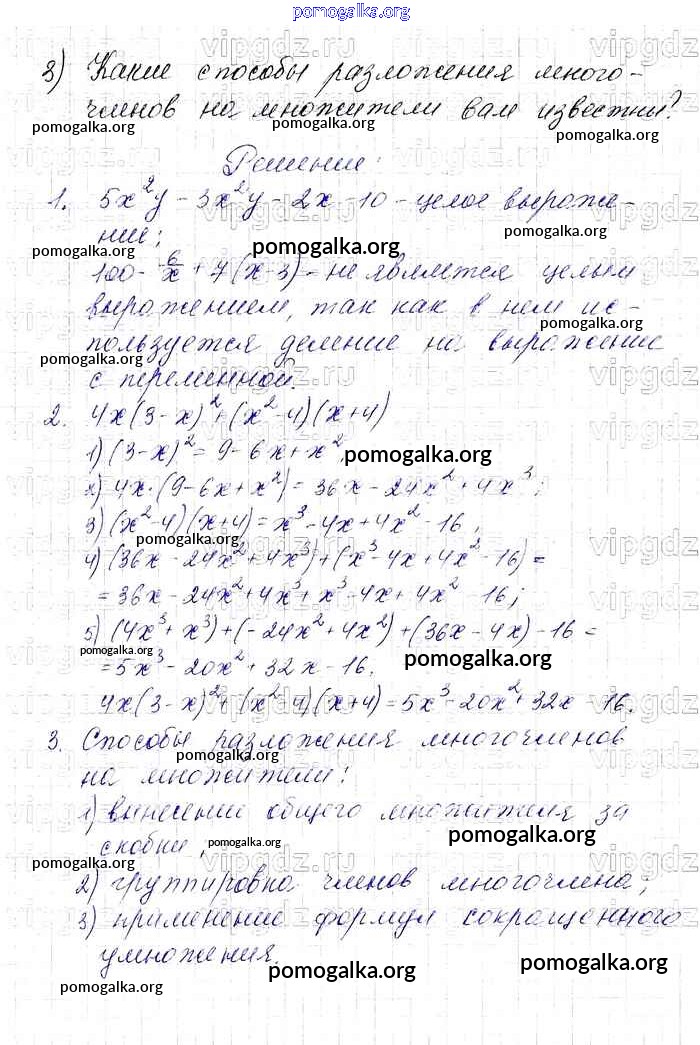 pomogalka.org
3) Какие способы разложения много-
членов на множители вам известны?
pomogalka.org pomogalka.org pomogalka.org
Решение:
1. 5x²y - 3x²y - 2x - 10 - целое выраже-
ние;
pomogalka.org pomogalka.org pomogalka.org
100 - 6/x + 7(x-3) - не является целым
выражением, так как в нем ис-
pomogalka.org
пользуется деление на выражение
pomogalka.org
с переменной.
2. 4x(3-x)² + (x²-4)(x+4)
1) (3-x)² = 9 - 6x + x²,
pomogalka.org
2) 4x·(9-6x+x²) = 36x - 24x² + 4x³;
3) (x²-4)(x+4) = x³ - 4x + 4x² - 16;
pomogalka.org
4) (36x - 24x² + 4x³) + (x³ - 4x + 4x² - 16) =
= 36x - 24x² + 4x³ + x³ - 4x + 4x² - 16;
5) (4x³ + x³) + (-24x² + 4x²) + (36x - 4x) - 16 =
pomogalka.org
= 5x³ - 20x² + 32x - 16.
pomogalka.org
4x(3-x)² + (x²-4)(x+4) = 5x³ - 20x² + 32x - 16.
3. Способы разложения многочленов
pomogalka.org
на множители:
1) вынесение общего множителя за
скобки;
pomogalka.org pomogalka.org
pomogalka.org
2) группировка членов многочлена;
3) применение формул сокращенного
умножения.
pomogalka.org pomogalka.org pomogalka.org
vipgdz.ru